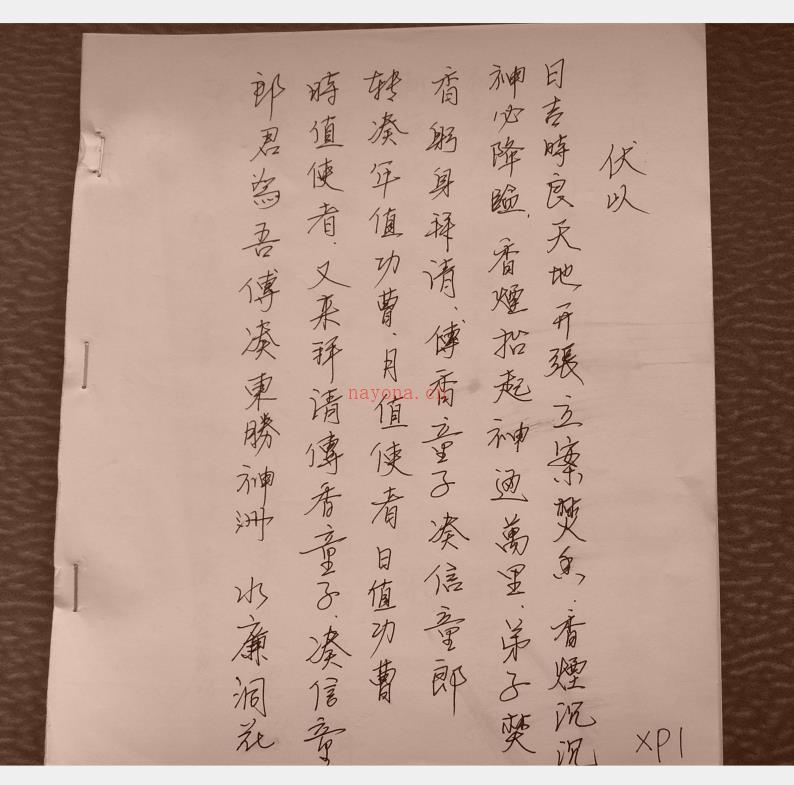 伏以
日吉時良天地开張立案焚香.香煙沉沉
神必降臨.香煙抬起神通萬里.弟子焚
香躬身拜请.傳香童子凑信童郎
转凑年值功曹.月值使者日值功曹
時值使者.又来拜请傳香童子.凑信童
郎君為吾傅凑東勝神洲 水廉洞花
XP1
nayona.cn